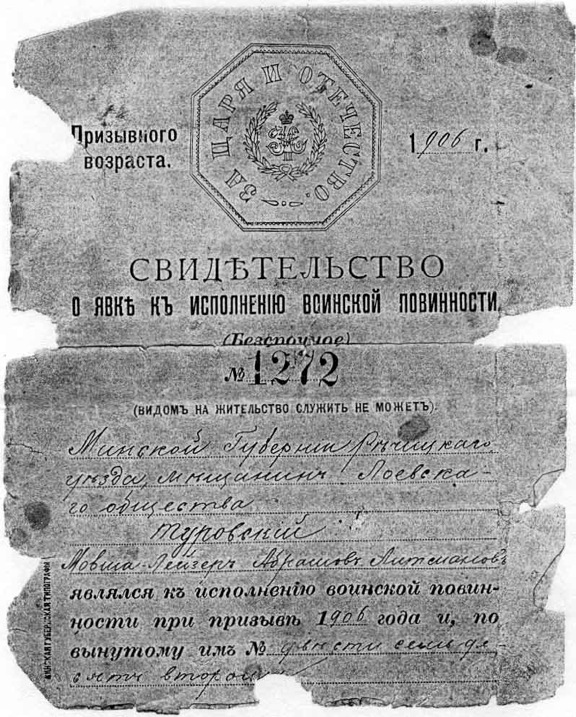 ЗА ЦАРЯ И ОТЕЧЕСТВО.
Призывного
возраста.
1906 г.
СВИДѢТЕЛЬСТВО
О ЯВКѢ КЪ ИСПОЛНЕНІЮ ВОИНСКОЙ ПОВИННОСТИ
(Безсрочное)
№ 1272
(ВИДОМЪ НА ЖИТЕЛЬСТВО СЛУЖИТЬ НЕ МОЖЕТЪ).
Минской Губерніи Рѣчицкаго
уѣзда, мѣщанинъ Лоевска-
го общества
Туровскій
Мовша-Лейзеръ Абрамовъ
являлся къ исполненію воинской повин-
ности при призывѣ 1906 года и, по
вынутому имъ № двѣсти семьде-
сятъ второй
МИНСКАЯ ГУБЕРНСКАЯ ТИПОГРАФІЯ